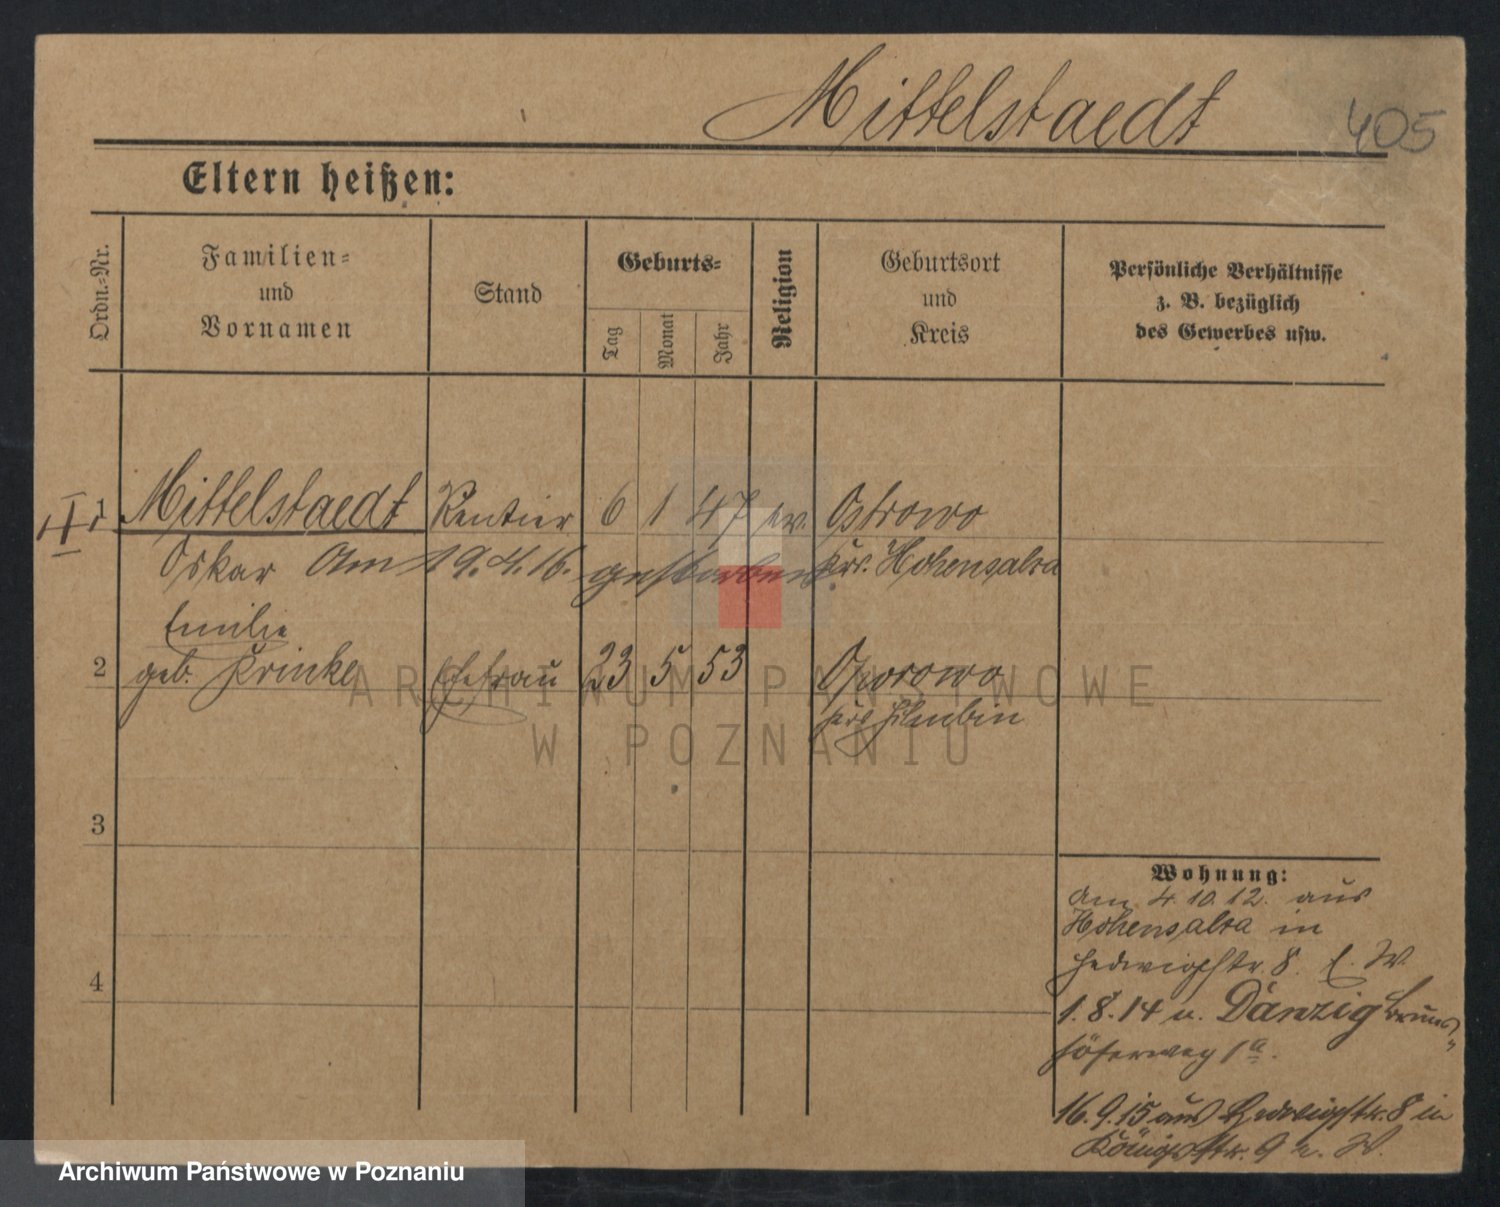 Mittelstaedt
405
Eltern heißen:
Ordn.-Nr.
Familien-
und
Vornamen
Stand
Geburts-
Tag
Monat
Jahr
Religion
Geburtsort
und
Kreis
Persönliche Verhältnisse
z. B. bezüglich
des Gewerbes usw.
II
1 Mittelstaedt Rentier 6 1 47 ev. Ostrowo
Oskar Am 19.4.16. gestorben Krs. Hohensalza
Emilie
2 geb. Krinke Ehefrau 23 5 53
3
4
Wohnung:
Am 4.10.12. aus
Hohensalza in
Hedwigstr. 8. W.
1.8.14 n. Danzig
1a.
16.9.15 aus Hedwigstr. 8 in
Königstr. 9 W.
ARCHIWUM PAŃSTWOWE
W POZNANIU
Archiwum Państwowe w Poznaniu